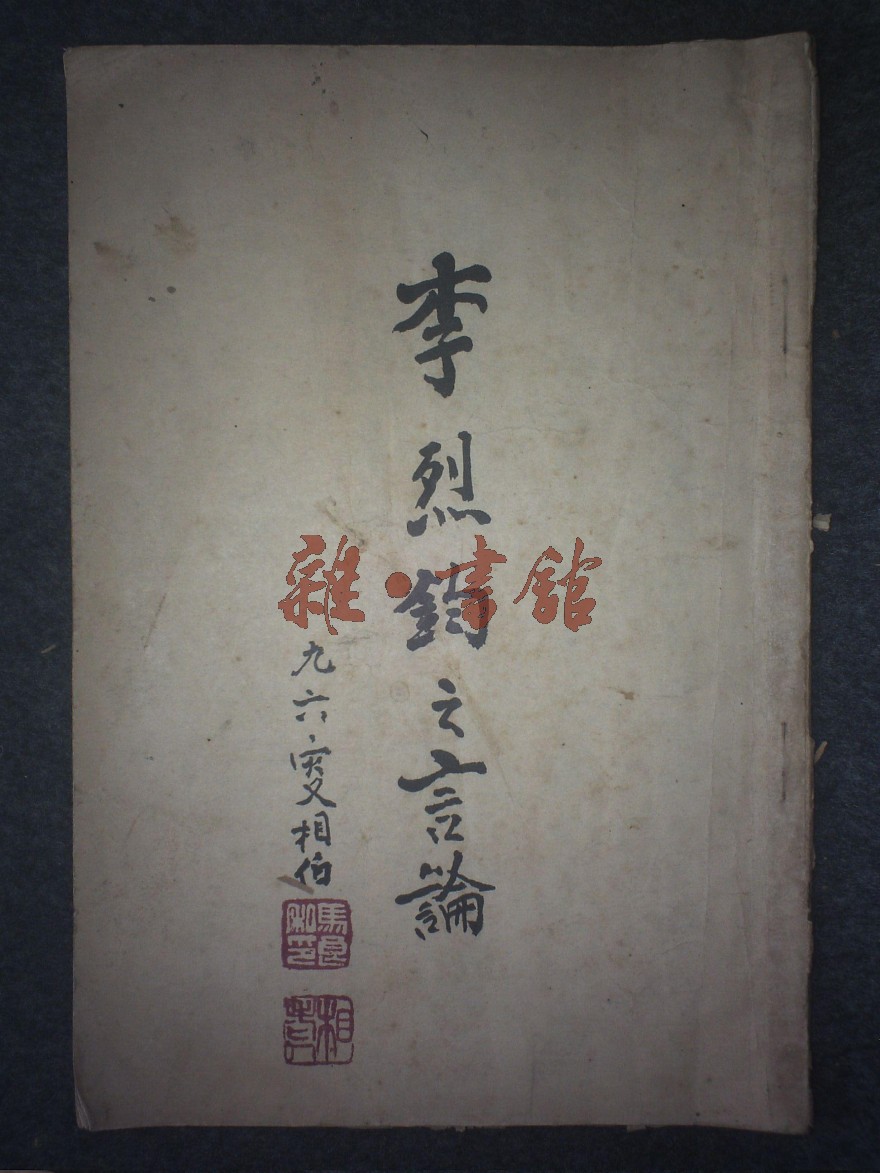 李烈鈞之言論
九六叟相伯
馬良
相
雜·書館